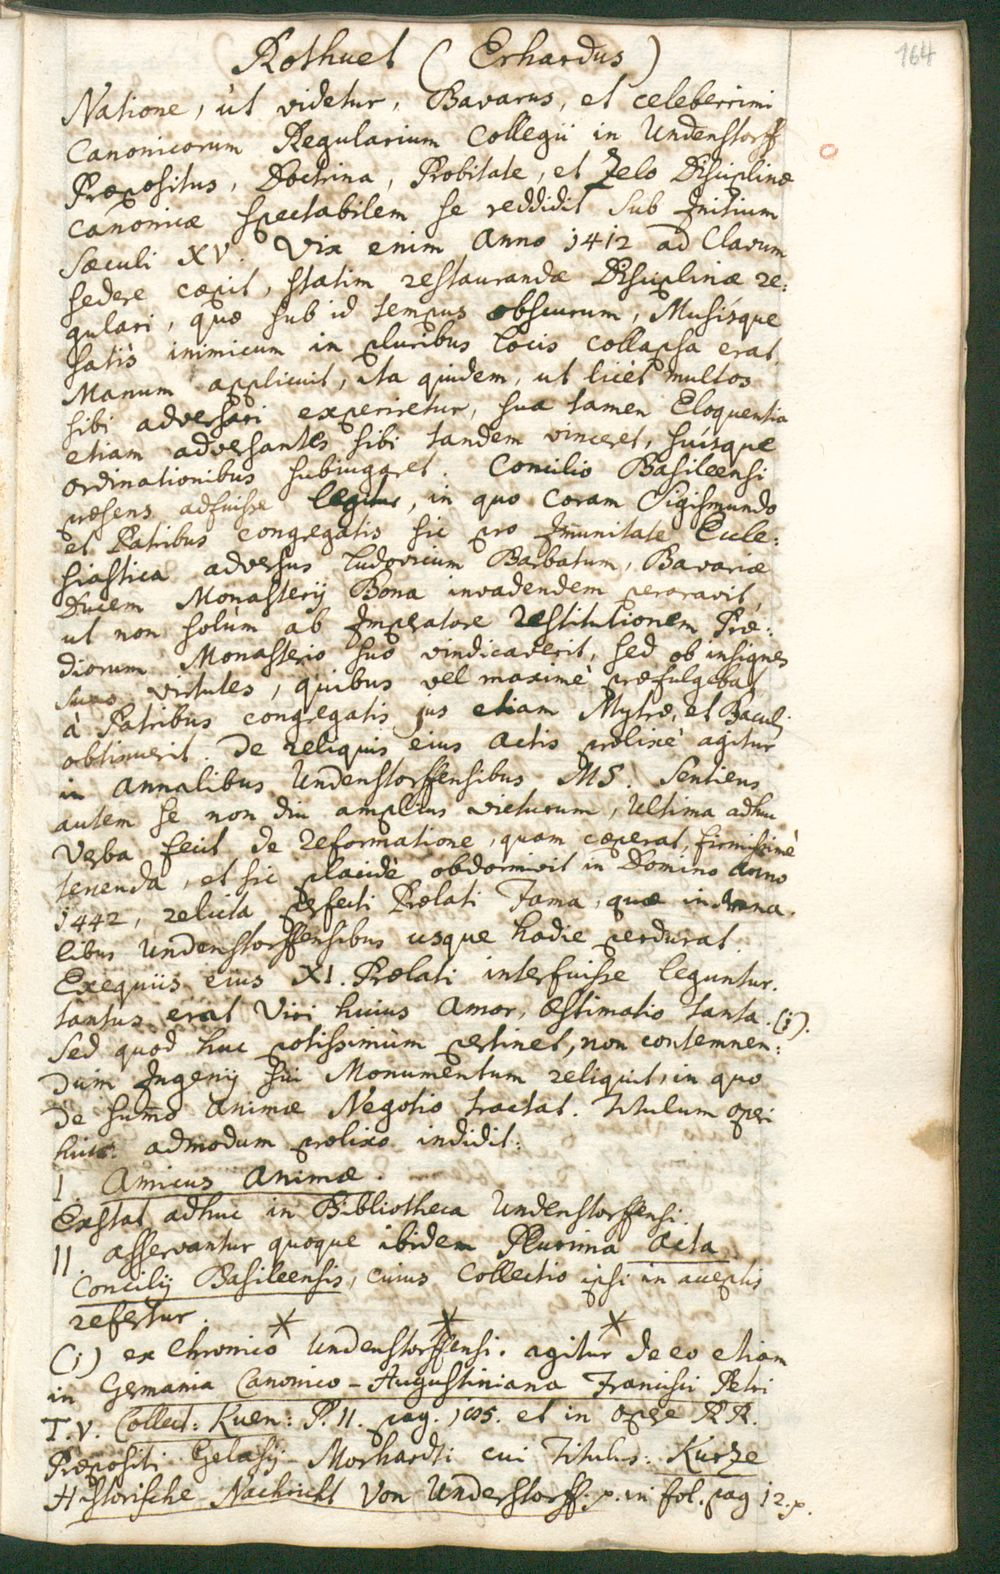 164
Rothuet (Erhardus)
Natione, ùt videtur, Bavarus, et celeberrimi
Canonicorum Regularium Collegii in Undenstorff
Præpositus, Doctrina, Probitate, et Zelo Disciplinæ
Canonicæ spectabilem se reddidit sub Initium
Sæculi XV. Vix enim Anno 1412 ad Clavum
sedere cœpit, statim restaurandæ Disciplinæ re:
gulari, quæ sub id tempus obscurum, Musisque
satis inimicum in pluribus locis collapsa erat,
Manum applicuit, ita quidem, ut licet multos
sibi adversari experiretur, sua tamen Eloquentia
etiam adversantes sibi tandem vinceret, suisque
ordinationibus subiugaret. Concilio Basileensi
præsens adfuisse legitur, in quo coram Sigismundo
et Patribus congregatis sic pro Immunitate Eccle:
siastica adversus Ludovicum Barbatum, Bavariæ
Ducem Monasterij Bona invadendem peroravit,
ut non solùm ab Imperatore restitutionem Præ:
diorum Monasterio suo vindicaverit, sed ob insignes
suas virtutes, quibus vel maximè præfulgebat,
à Patribus congregatis jus etiam Mytræ, et Baculi
obtinuerit. De reliquis eius actis prolixè agitur
in Annalibus Undenstorffensibus MS. Sentiens
autem se non diu amplius victurum, ultima adhuc
Verba fecit de reformatione, quam cœperat, firmissimè
tenenda, et sic placidè obdormivit in Domino Anno
1442, relicta perfecti Prælati Fama, quæ in Anna.
libus Undenstorffensibus usque hodie perdurat.
Exequiis eius XI. Prælati interfuisse leguntur.
tantus erat Viri huius Amor, Æstimatio tanta. (i).
Sed quod huc potissimùm pertinet, non contemnen:
dum Ingenij sui Monumentum reliquit, in quo
de summo Animæ Negotio tractat. Titulum operi
huic admodum prolixo indidit:
I. Amicus Animæ.
Exstat adhuc in Bibliotheca Undenstorffensi.
II. asservantur quoque ibidem Plurima Acta
Concilij Basileensis, cuius Collectio ipsi in acceptis
refertur.
* * *
(i) ex Chronico Undenstorffensi. agitur de eo etiam
in Germania Canonico-Augustiniana Francisci Petri
T. V. Collect: Kuen: P. II. pag. 185. et in opere RR.
Præpositi Gelasij Morhardti cui Titulus: Kurze
Historische Nachricht von Understorff. p. in fol. pag 12. p.